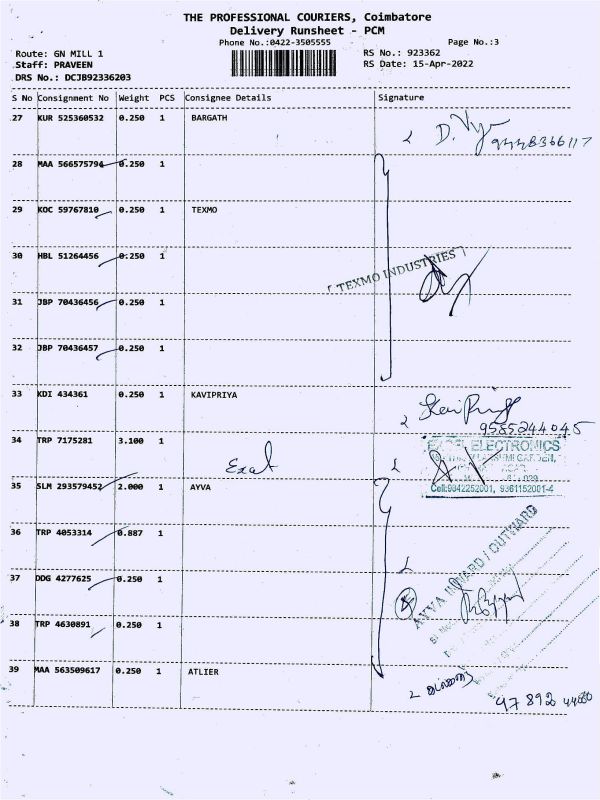 THE PROFESSIONAL COURIERS, Coimbatore
Delivery Runsheet - PCM
Phone No.:0422-3505555 Page No.:3
Route: GN MILL 1 RS No.: 923362
Staff: PRAVEEN RS Date: 15-Apr-2022
DRS No.: DCJB92336203
S No Consignment No Weight PCS Consignee Details Signature
27 KUR 525360532 0.250 1 BARGATH
28 MAA 566575794 0.250 1
29 KOC 59767810 0.250 1 TEXMO
30 HBL 51264456 0.250 1
TEXMO INDUSTRIES
31 JBP 70436456 0.250 1
32 JBP 70436457 0.250 1
33 KDI 434361 0.250 1 KAVIPRIYA
9585244045
34 TRP 7175281 3.100 1
EXCEL ELECTRONICS
Cell:9842252001, 9361152001-4
35 SLM 293579452 2.000 1 AYVA
36 TRP 4053314 0.887 1
37 DDG 4277625 0.250 1
AYVA INWARD / OUTWARD
38 TRP 4630891 0.250 1
39 MAA 563509617 0.250 1 ATLIER